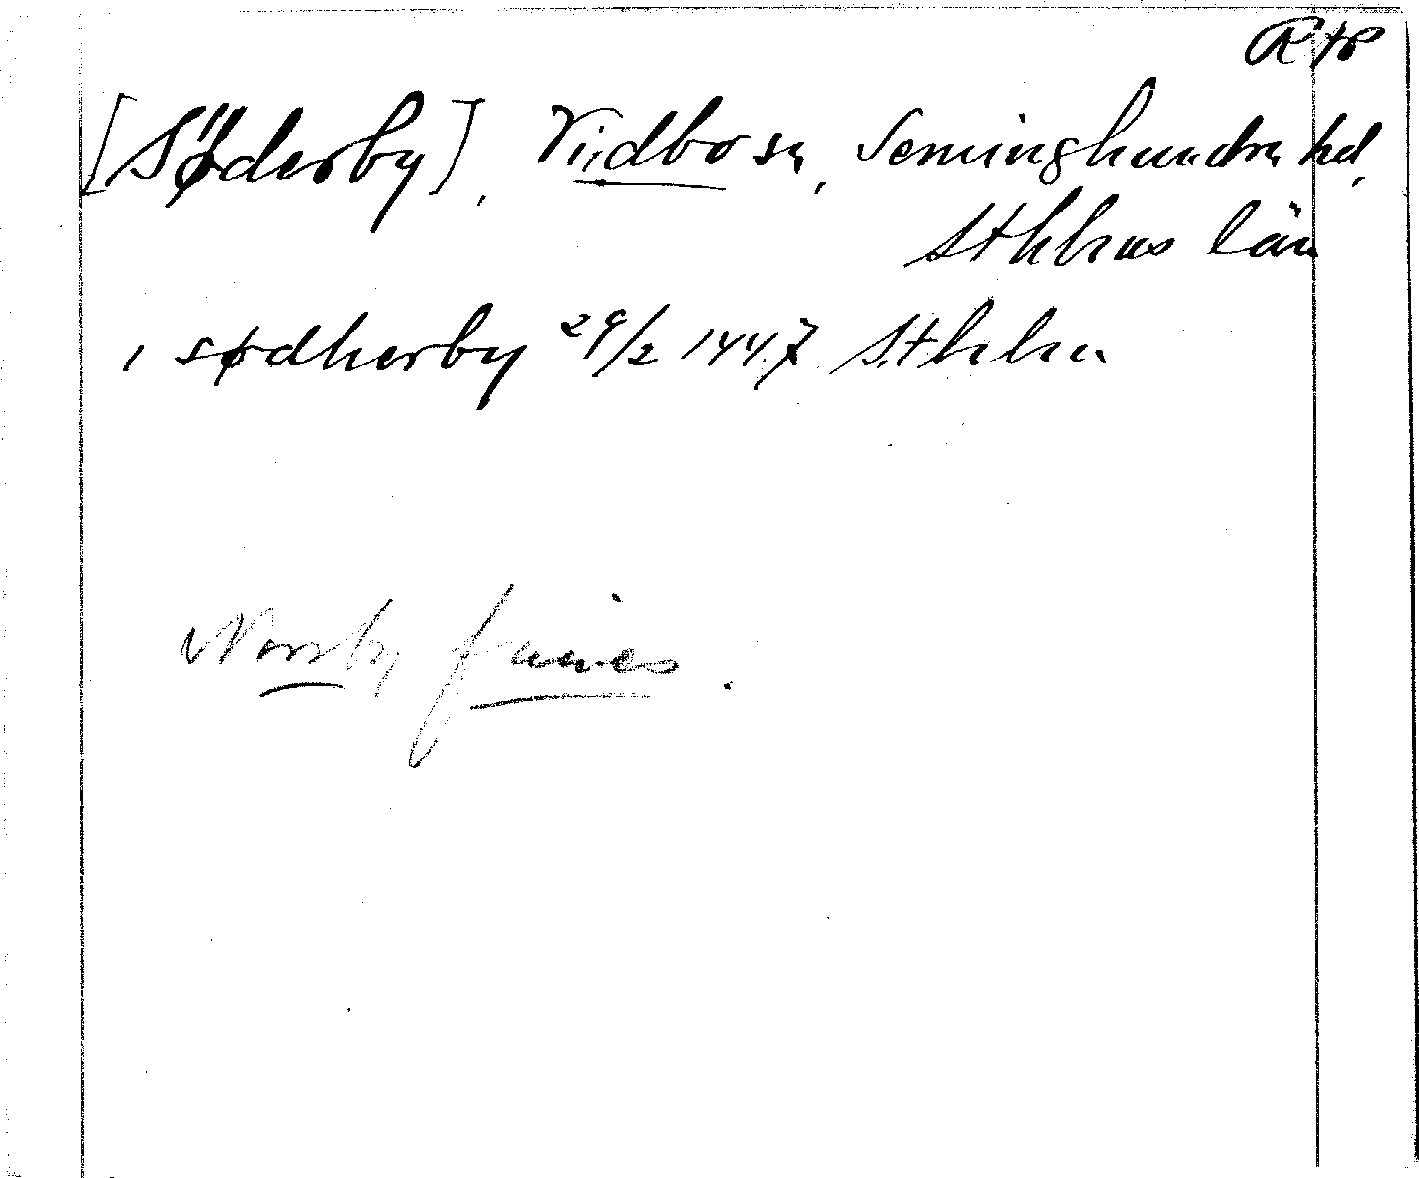 [Söderby], Vidbo sn, Seminghundra hd,
Sthlms län
i sødherby 29/2 1447 Sthlm
Norrby finnes.